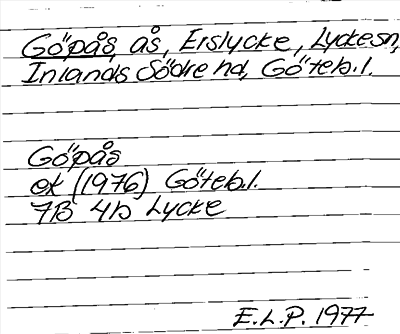 Göpås ås, Erslycke, Lyckesn,
Inlands Södre hd, Göteb.l.
Göpås
ek (1976) Göteb.l.
7B 4b Lycke
E.L.P. 1977